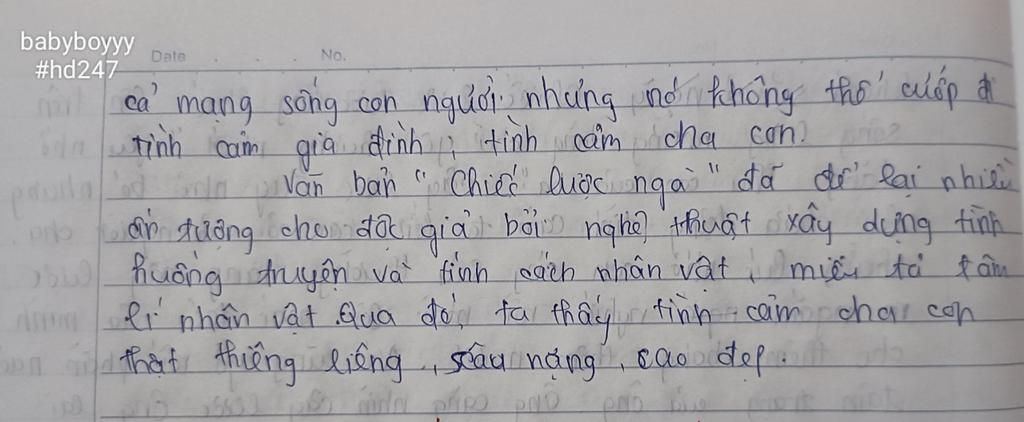 babyboyyy
#hd247
Date . . . No.
cả mạng sống con người nhưng nó không thể cướp đi
tình cảm gia đình, tình cảm cha con.
Văn bản "Chiếc lược ngà" đã để lại nhiều
ấn tượng cho độc giả bởi nghệ thuật xây dựng tình
huống truyện và tính cách nhân vật, miêu tả tâm
lí nhân vật. Qua đó, ta thấy tình cảm cha con
thật thiêng liêng, sâu nặng, cao đẹp.